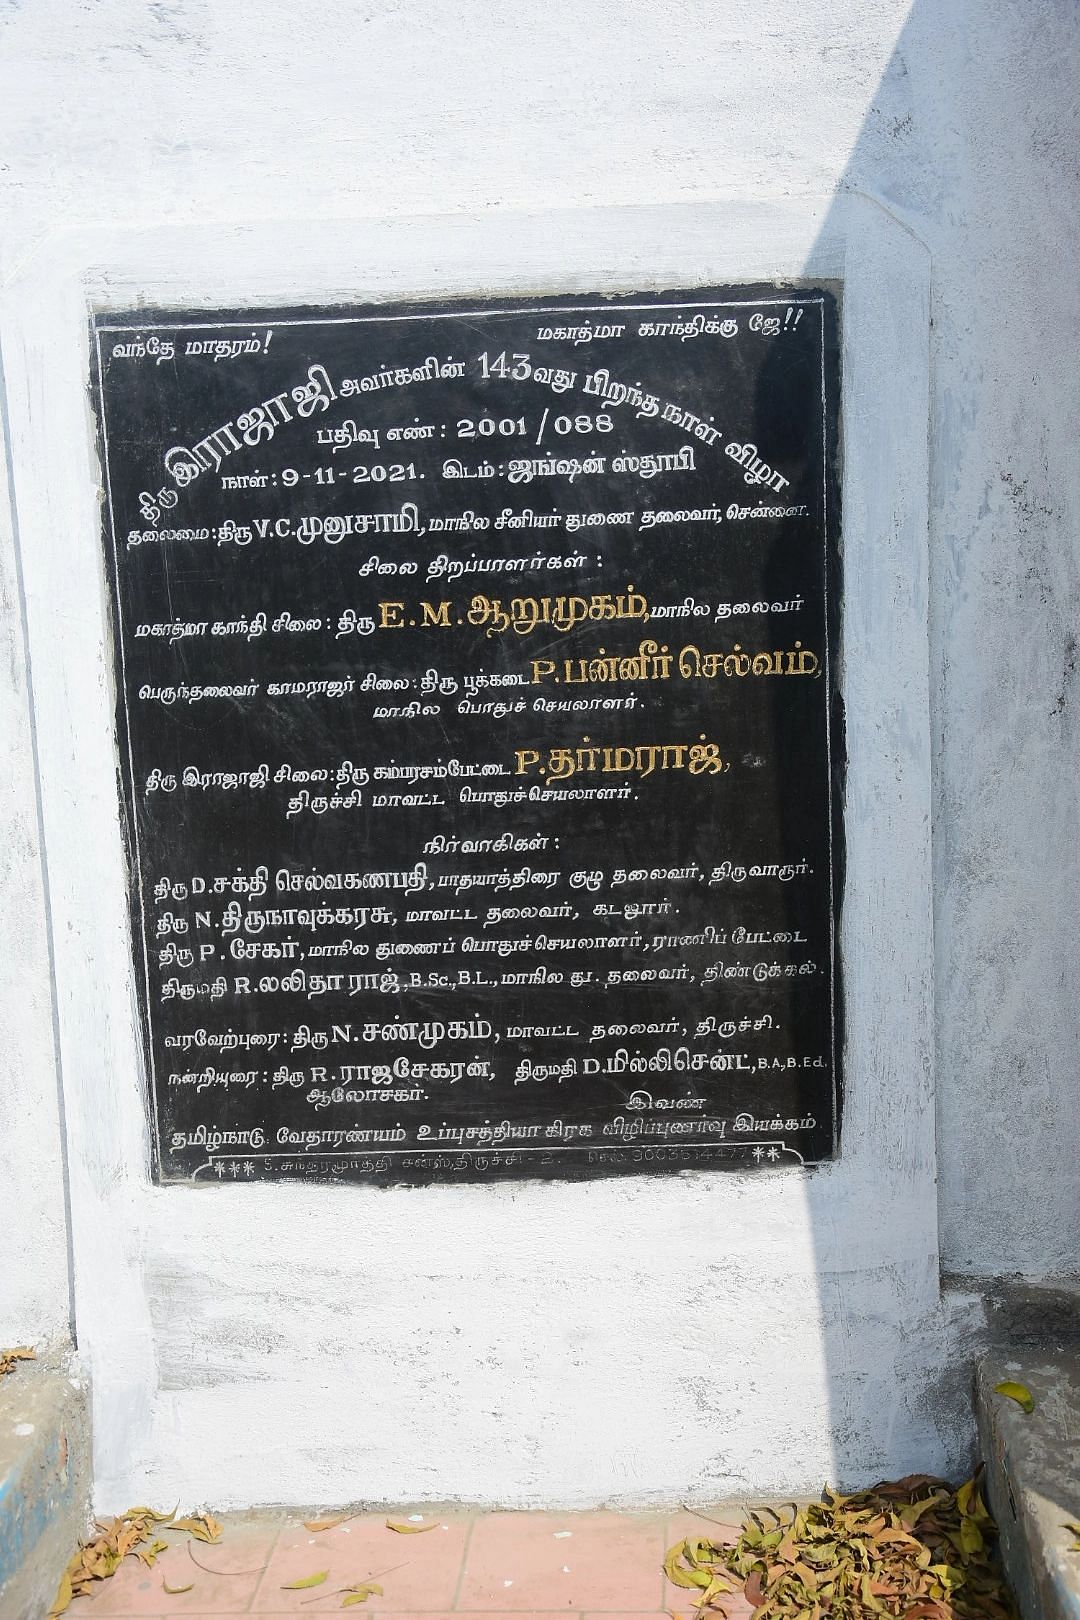 வந்தே மாதரம்! மகாத்மா காந்திக்கு ஜே!!
திரு இராஜாஜி அவர்களின் 143வது பிறந்த நாள் விழா
பதிவு எண் : 2001/088
நாள் : 9-11-2021. இடம் : ஜங்ஷன் ஸ்தூபி
தலைமை : திரு V.C. முனுசாமி, மாநில சீனியர் துணை தலைவர், சென்னை.
சிலை திறப்பாளர்கள் :
மகாத்மா காந்தி சிலை : திரு E.M. ஆறுமுகம், மாநில தலைவர்
பெருந்தலைவர் காமராஜர் சிலை : திரு பூக்கடை P. பன்னீர் செல்வம்,
மாநில பொதுச் செயலாளர்.
திரு இராஜாஜி சிலை : திரு கம்பரசம்பேட்டை P. தர்மராஜ்,
திருச்சி மாவட்ட பொதுச்செயலாளர்.
நிர்வாகிகள் :
திரு D. சக்தி செல்வகணபதி, பாதயாத்திரை குழு தலைவர், திருவாரூர்.
திரு N. திருநாவுக்கரசு, மாவட்ட தலைவர், கடலூர்.
திரு P. சேகர், மாநில துணைப் பொதுச்செயலாளர், ராணிப் பேட்டை
திருமதி R. லலிதா ராஜ், B.Sc., B.L., மாநில து. தலைவர், திண்டுக்கல்.
வரவேற்புரை : திரு N. சண்முகம், மாவட்ட தலைவர், திருச்சி.
நன்றியுரை : திரு R. ராஜசேகரன், திருமதி D. மில்லிசென்ட், B.A., B.Ed.
ஆலோசகர்.
இவண்
தமிழ்நாடு வேதாரண்யம் உப்புசத்தியாகிரக விழிப்புணர்வு இயக்கம்
*** S. சுந்தரமூர்த்தி சன்ஸ், திருச்சி - 2. செல் **